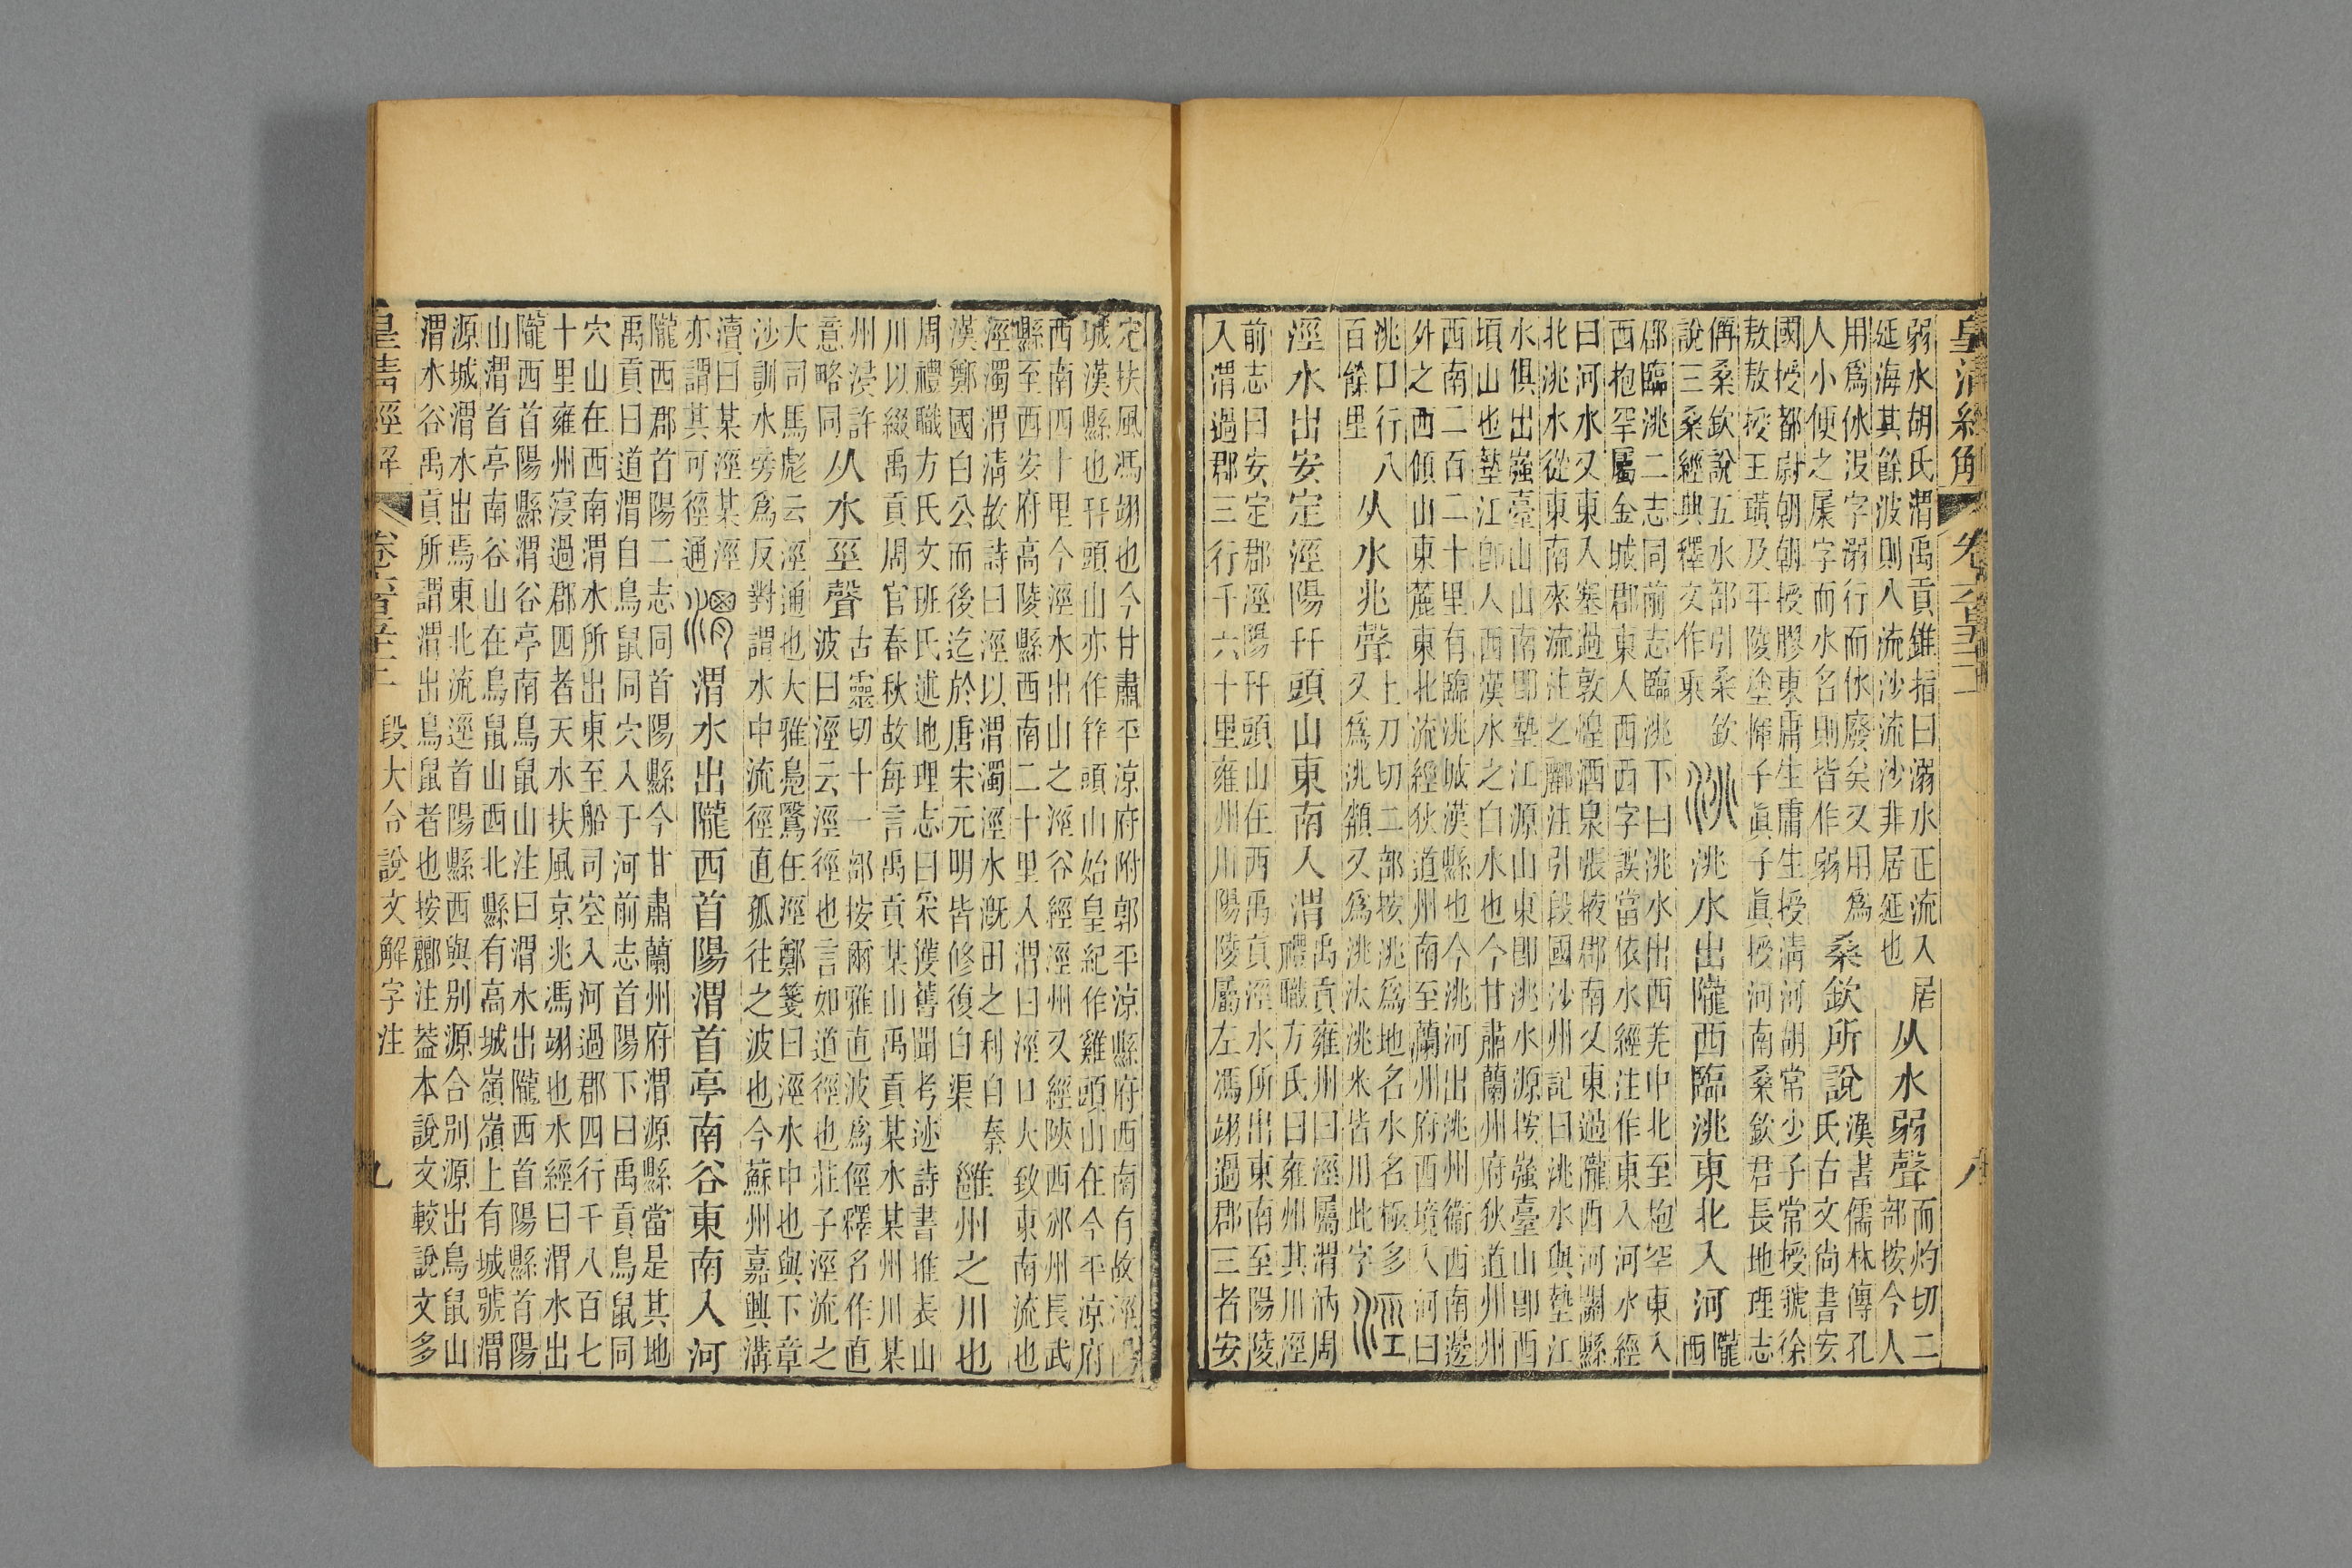 皇清經解 卷六百五十二 八
弱水胡氏渭禹貢錐指曰溺水正流入居
延海其餘波則入流沙流沙非居延也
从水弱聲
而灼切二
部按今人
用爲休沒字溺行而休廢矣又用爲
人小便之㞙字而水名則皆作弱
桑欽所說
漢書儒林傳孔
氏古文尚書安
國授都尉朝朝授膠東庸生庸生授淸河胡常少子常授虢徐
敖敖授王璜及平陵塗惲子眞子眞授河南桑欽君長地理志
偁桑欽說五水部引桑欽
說三桑經典釋文作桒
洮
洮水出隴西臨洮東北入河
隴
西
郡臨洮二志同前志臨洮下曰洮水出西羌中北至枹罕東入
西枹罕屬金城郡東入西西字誤當依水經注作東入河水經
曰河水又東入塞過敦煌酒泉張掖郡南又東過隴西河關縣
北洮水從東南來流注之酈注引段國沙州記曰洮水與墊江
水俱出嵹臺山山南卽墊江源山東卽洮水源按嵹臺山卽西
頃山也墊江卽入西漢水之白水也今甘肅蘭州府狄道州州
西南二百二十里有臨洮城漢縣也今洮河出洮州衞西南邊
外之西傾山東麓東北流經狄道州南至蘭州府西境入河曰
洮口行八
百餘里
从水兆聲
土刀切二部按洮爲地名水名極多
又爲洮頮又爲洮汰洮米皆用此字
涇
涇水出安定涇陽幵頭山東南入渭
禹貢雍州曰涇屬渭汭周
禮職方氏曰雍州其川涇
前志曰安定郡涇陽幵頭山在西禹貢涇水所出東南至陽陵
入渭過郡三行千六十里雍州川陽陵屬左馮翊過郡三者安
定扶風馮翊也今甘肅平涼府附郭平涼縣府西南有故涇陽
城漢縣也幵頭山亦作笄頭山始皇紀作雞頭山在今平涼府
西南四十里今涇水出山之涇谷經涇州又經陝西邠州長武
縣至西安府高陵縣西南二十里入渭曰涇口大致東南流也
涇濁渭淸故詩曰涇以渭濁涇水漑田之利自秦
漢鄭國白公而後迄於唐宋元明皆修復白渠
雝州之川也
周禮職方氏文班氏述地理志曰采獲舊聞考迹詩書推表山
川以綴禹貢周官春秋故每言禹貢某山禹貢某水某州川某
州浸許
意略同
从水巠聲
古靈切十一部按爾雅直波爲徑釋名作直
波曰涇云涇徑也言如道徑也莊子涇流之
大司馬彪云涇通也大雅鳧鷖在涇鄭箋曰涇水中也與下章
沙訓水旁爲反對謂水中流徑直孤往之波也今蘇州嘉興溝
瀆曰某涇某涇
亦謂其可徑通
渭
渭水出隴西首陽渭首亭南谷東南入河
隴西郡首陽二志同首陽縣今甘肅蘭州府渭源縣當是其地
禹貢曰道渭自鳥鼠同穴入于河前志首陽下曰禹貢鳥鼠同
穴山在西南渭水所出東至船司空入河過郡四行千八百七
十里雍州寖過郡四者天水扶風京兆馮翊也水經曰渭水出
隴西首陽縣渭谷亭南鳥鼠山注曰渭水出隴西首陽縣首陽
山渭首亭南谷山在鳥鼠山西北縣有高城嶺嶺上有城號渭
源城渭水出焉東北流逕首陽縣西與別源合別源出鳥鼠山
渭水谷禹貢所謂渭出鳥鼠者也按酈注葢本說文較說文多
皇清經解 卷六百五十二 段大令說文解字注 九